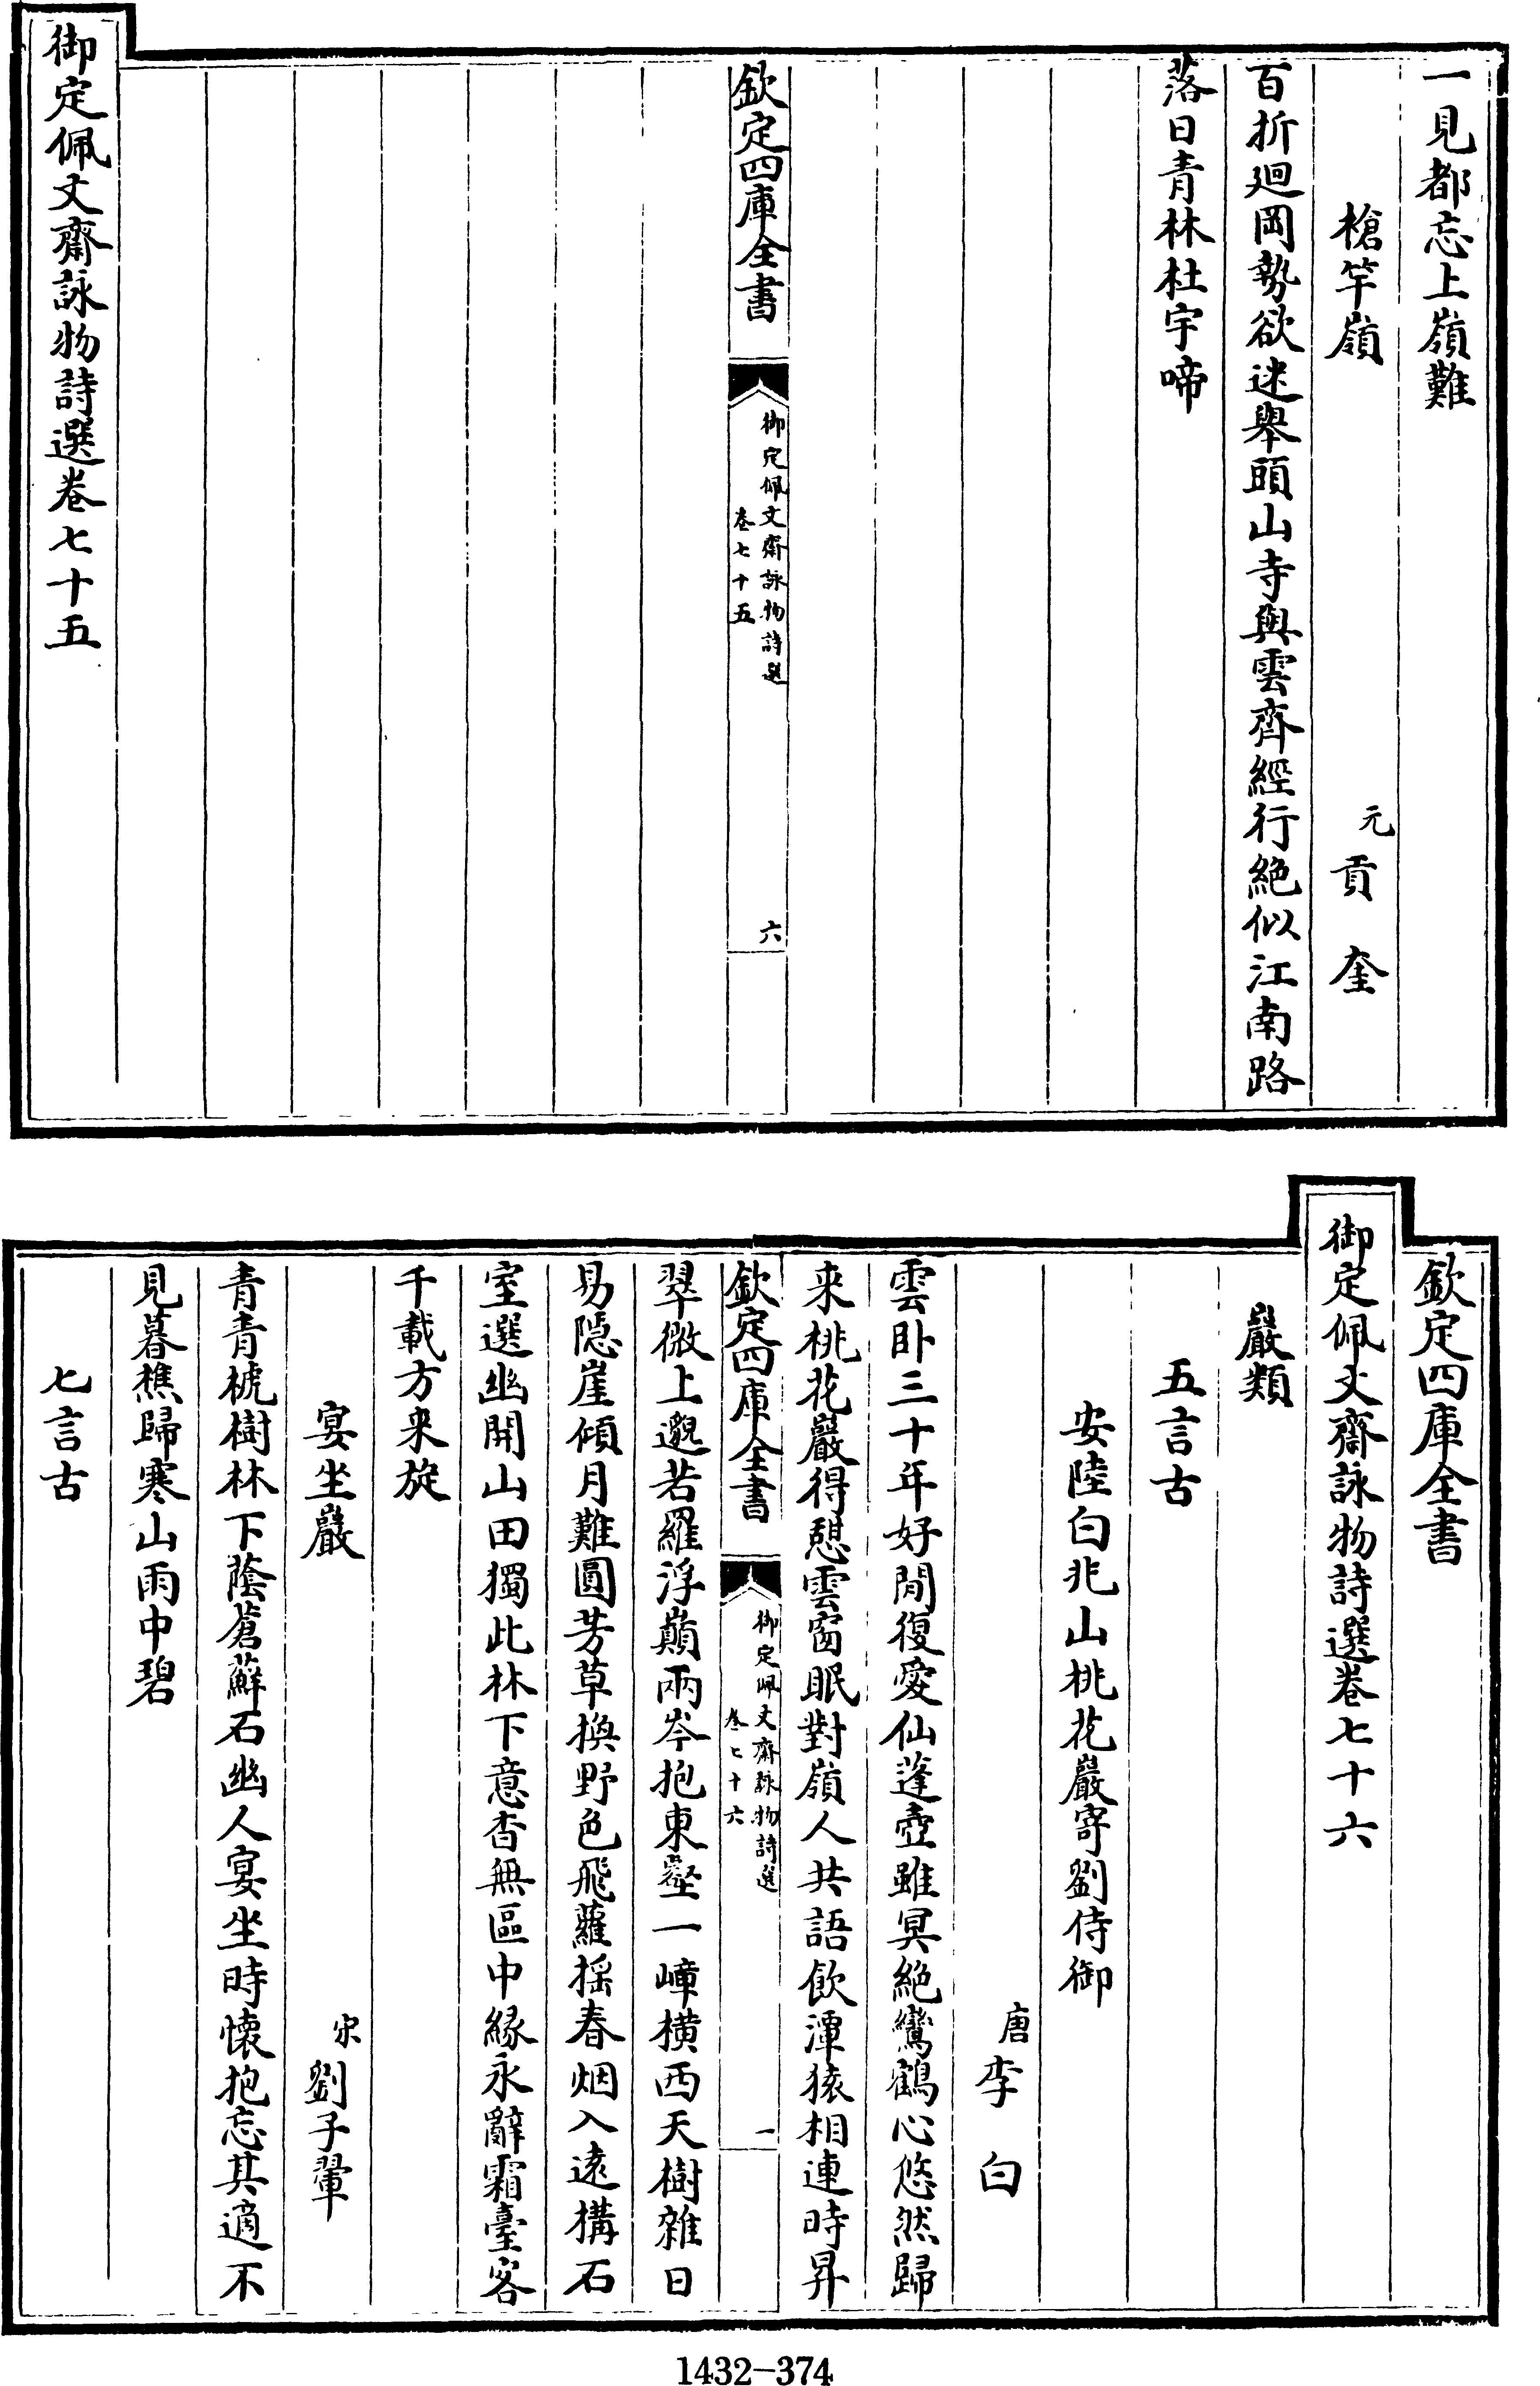 一見都忘上嶺難
槍竿嶺 元 貢奎
百折廻岡勢欲迷舉頭山寺與雲齊經行絶似江南路
落日青林杜宇啼
欽定四庫全書
御定佩文齋詠物詩選
卷七十五
六
御定佩文齋詠物詩選卷七十五
欽定四庫全書
御定佩文齋詠物詩選卷七十六
巖類
五言古
安陸白兆山桃花巖寄劉侍御
唐 李白
雲卧三十年好閒復愛仙蓬壺雖冥絶鸞鶴心悠然歸
来桃花巖得憩雲窗眠對嶺人共語飲潭猿相連時昇
欽定四庫全書
御定佩文齋詠物詩選
卷七十六
一
翠微上邈若羅浮巔兩岑抱東壑一嶂横西天樹雜日
易隠崖傾月難圓芳草換野色飛蘿揺春烟入逺構石
室選幽開山田獨此林下意杳無區中縁永辭霜臺客
千載方来旋
宴坐巖 宋 劉子翬
青青椃樹林下蔭蒼蘚石幽人宴坐時懐抱忘其適不
見暮樵歸寒山雨中碧
七言古
1432-374